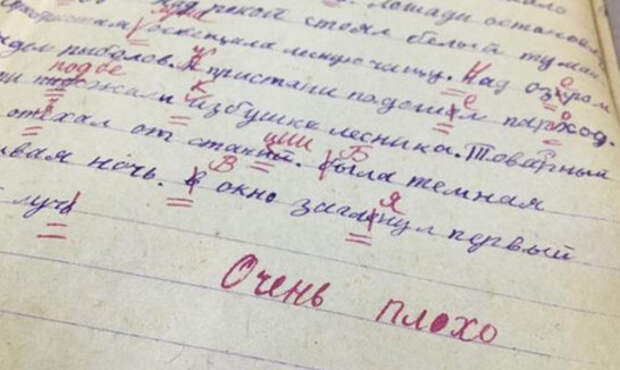 Над рекой стоял белый туман. Лошади остановил
освещала лесную чащу. Над озером
рыболов. К пристани подошел пароход.
подбежали к избушке лесника. Товарный
отъехал от станции. Была темная
ночь. В окно заглянул первый
луч
Очень плохо